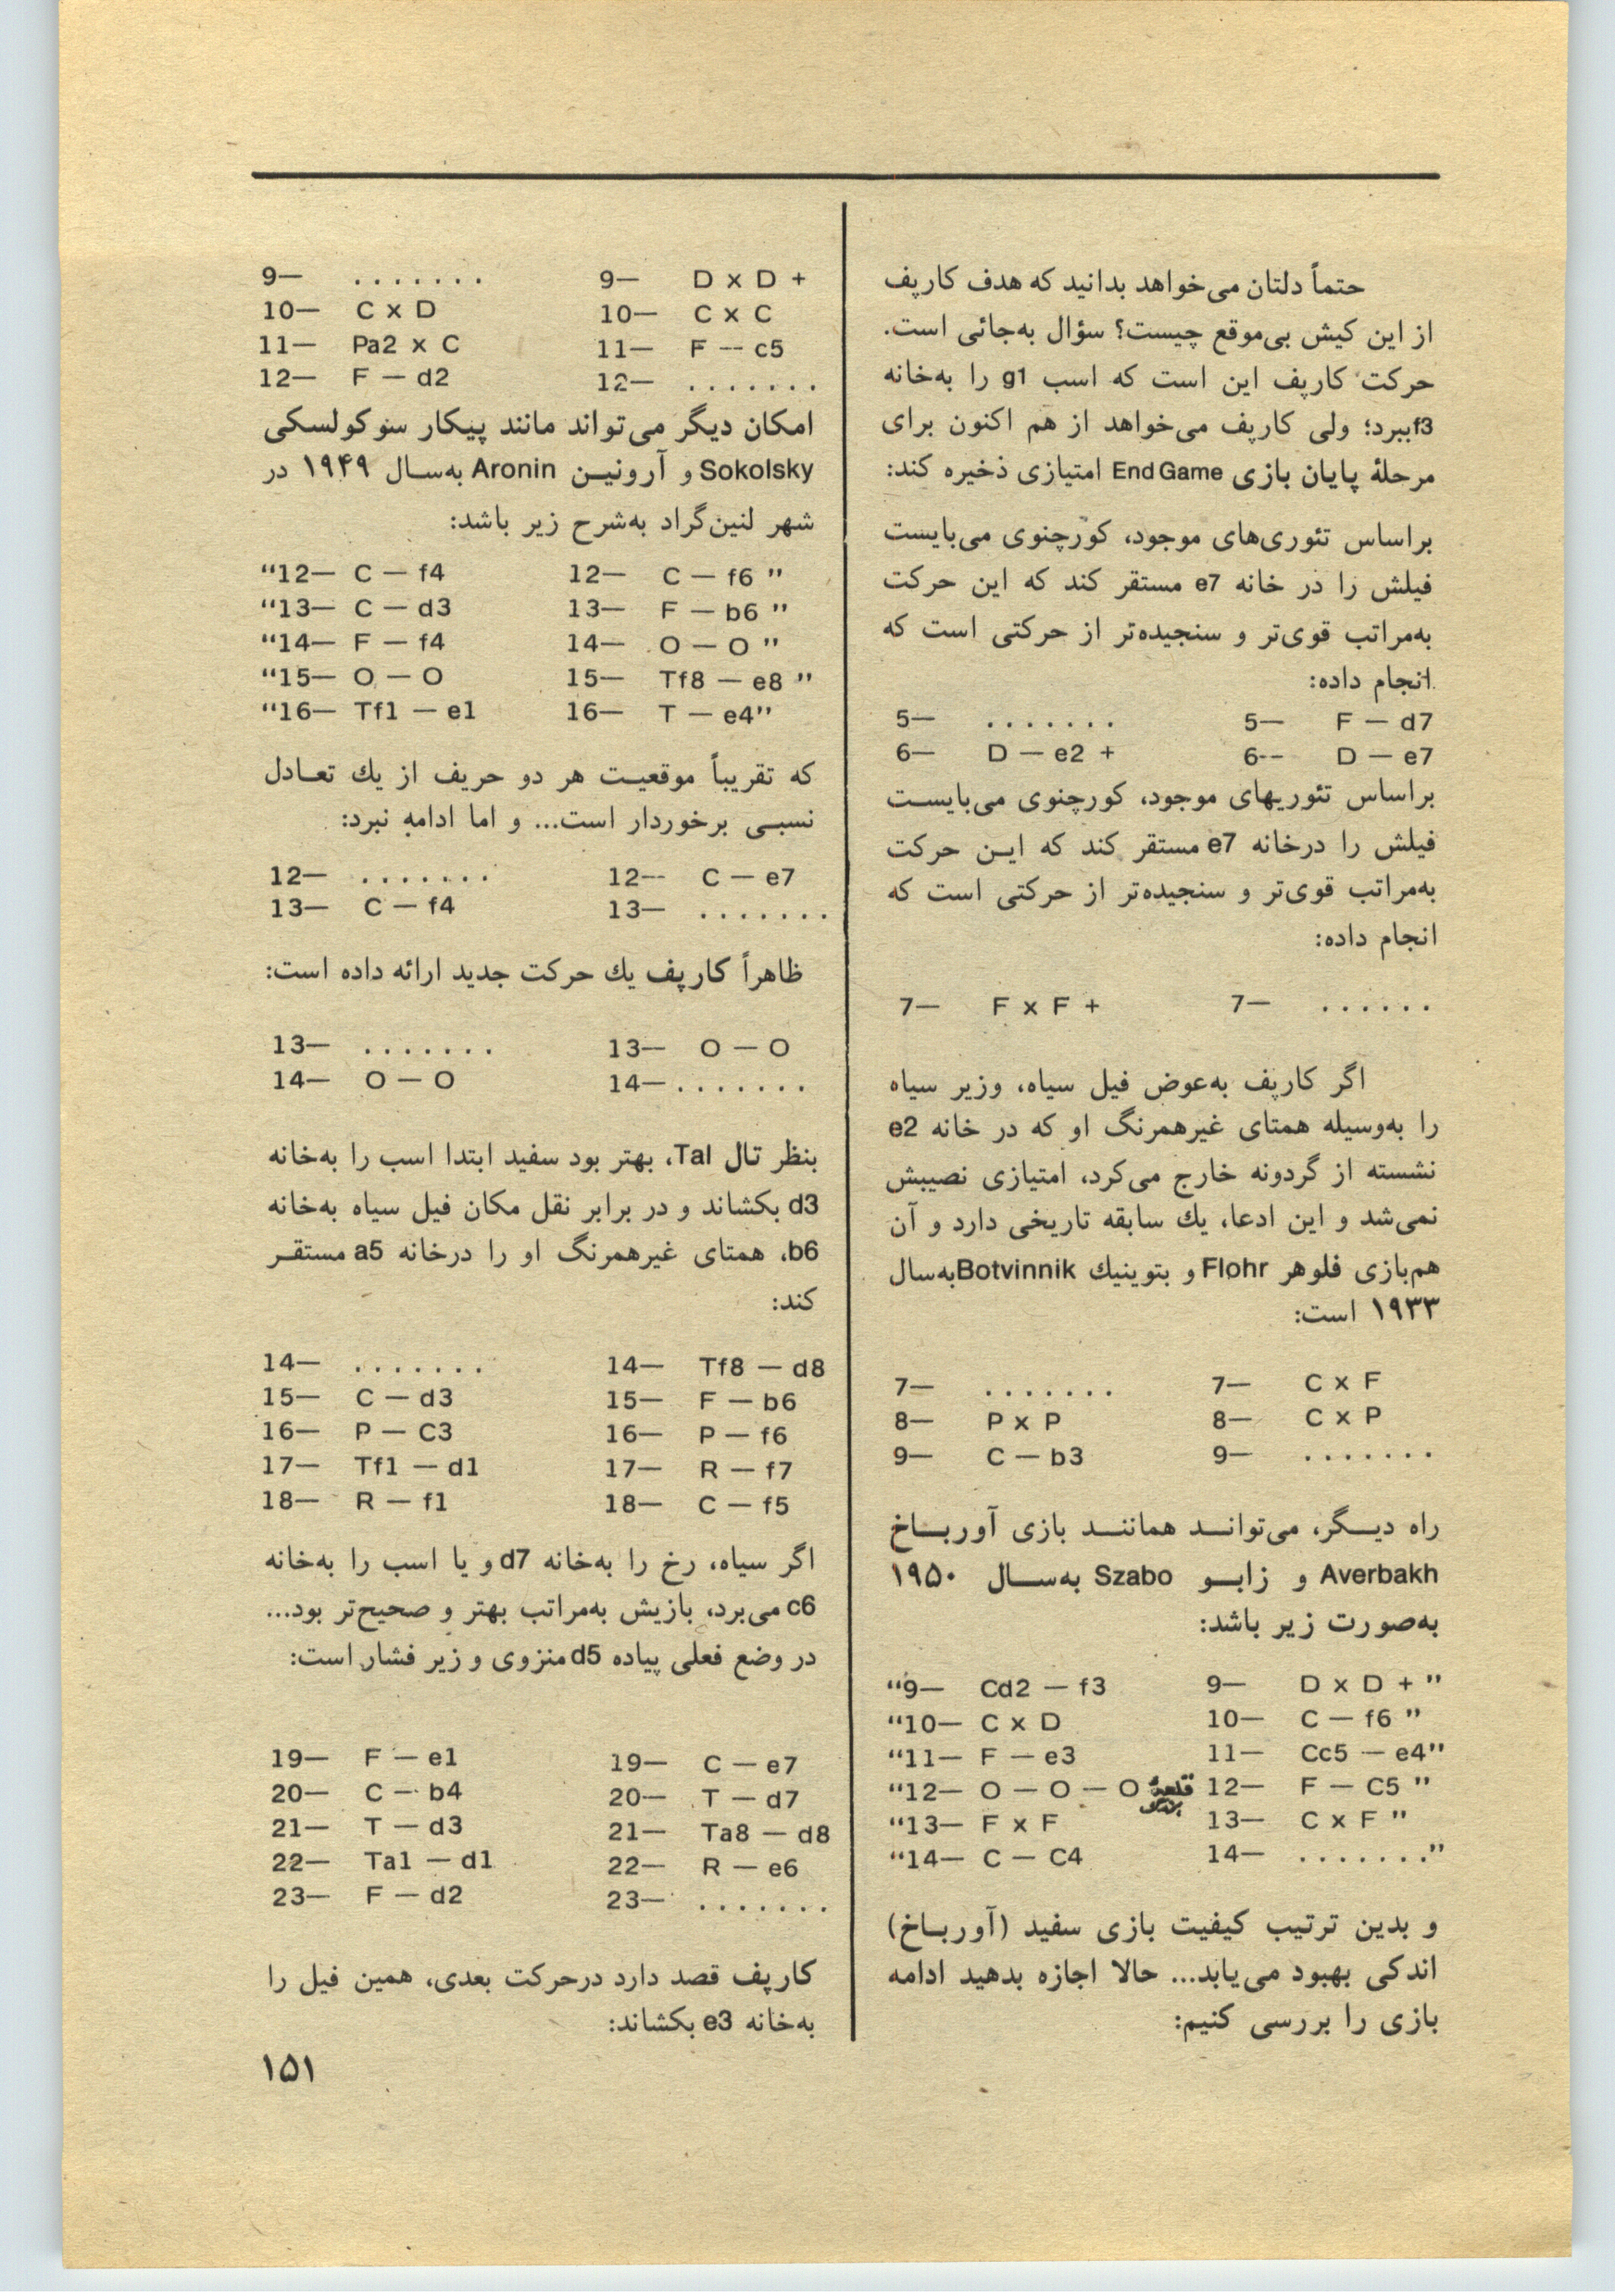 حتماً دلتان می‌خواهد بدانید که هدف کارپف
از این کیش بی‌موقع چیست؟ سؤال به‌جائی است.
حرکت کارپف این است که اسب g1 را به‌خانه
f3ببرد؛ ولی کارپف می‌خواهد از هم اکنون برای
مرحلهٔ پایان بازی End Game امتیازی ذخیره کند:
براساس تئوری‌های موجود، کورچنوی می‌بایست
فیلش را در خانه e7 مستقر کند که این حرکت
به‌مراتب قوی‌تر و سنجیده‌تر از حرکتی است که
انجام داده:
5— ....... 5— F — d7
6— D — e2 + 6-- D — e7
براساس تئوریهای موجود، کورچنوی می‌بایست
فیلش را درخانه e7 مستقر کند که این حرکت
به‌مراتب قوی‌تر و سنجیده‌تر از حرکتی است که
انجام داده:
7— F x F + 7— ......
اگر کارپف به‌عوض فیل سیاه، وزیر سیاه
را به‌وسیله همتای غیرهمرنگ او که در خانه e2
نشسته از گردونه خارج می‌کرد، امتیازی نصیبش
نمی‌شد و این ادعا، یك سابقه تاریخی دارد و آن
هم‌بازی فلوهر Flohr و بتوینیك Botvinnik به‌سال
۱۹۳۳ است:
7— ....... 7— C x F
8— P x P 8— C x P
9— C — b3 9— .......
راه دیگر، می‌تواند همانند بازی آورباخ
Averbakh و زابو Szabo به‌سال ۱۹۵۰
به‌صورت زیر باشد:
“9— Cd2 — f3 9— D x D + ”
“10— C x D 10— C — f6 ”
“11— F — e3 11— Cc5 — e4”
“12— O — O — O قلعهٔ بزرگ 12— F — C5 ”
“13— F x F 13— C x F ”
“14— C — C4 14— .......”
و بدین ترتیب کیفیت بازی سفید (آورباخ)
اندکی بهبود می‌یابد... حالا اجازه بدهید ادامه
بازی را بررسی کنیم:
9— ....... 9— D x D +
10— C x D 10— C x C
11— Pa2 x C 11— F -- c5
12— F — d2 12— .......
امکان دیگر می‌تواند مانند پیکار سوکولسکی
Sokolsky و آرونین Aronin به‌سال ۱۹۴۹ در
شهر لنین‌گراد به‌شرح زیر باشد:
“12— C — f4 12— C — f6 ”
“13— C — d3 13— F — b6 ”
“14— F — f4 14— O — O ”
“15— O — O 15— Tf8 — e8 ”
“16— Tf1 — e1 16— T — e4”
که تقریباً موقعیت هر دو حریف از یك تعادل
نسبی برخوردار است... و اما ادامه نبرد:
12— ....... 12-- C — e7
13— C — f4 13— .......
ظاهراً کارپف یك حرکت جدید ارائه داده است:
13— ....... 13— O — O
14— O — O 14— .......
بنظر تال Tal، بهتر بود سفید ابتدا اسب را به‌خانه
d3 بکشاند و در برابر نقل مکان فیل سیاه به‌خانه
b6، همتای غیرهمرنگ او را درخانه a5 مستقر
کند:
14— ....... 14— Tf8 — d8
15— C — d3 15— F — b6
16— P — C3 16— P — f6
17— Tf1 — d1 17— R — f7
18— R — f1 18— C — f5
اگر سیاه، رخ را به‌خانه d7 و یا اسب را به‌خانه
c6 می‌برد، بازیش به‌مراتب بهتر و صحیح‌تر بود...
در وضع فعلی پیاده d5 منزوی و زیر فشار است:
19— F — e1 19— C — e7
20— C — b4 20— T — d7
21— T — d3 21— Ta8 — d8
22— Ta1 — d1 22— R — e6
23— F — d2 23— .......
کارپف قصد دارد درحرکت بعدی، همین فیل را
به‌خانه e3 بکشاند:
۱۵۱